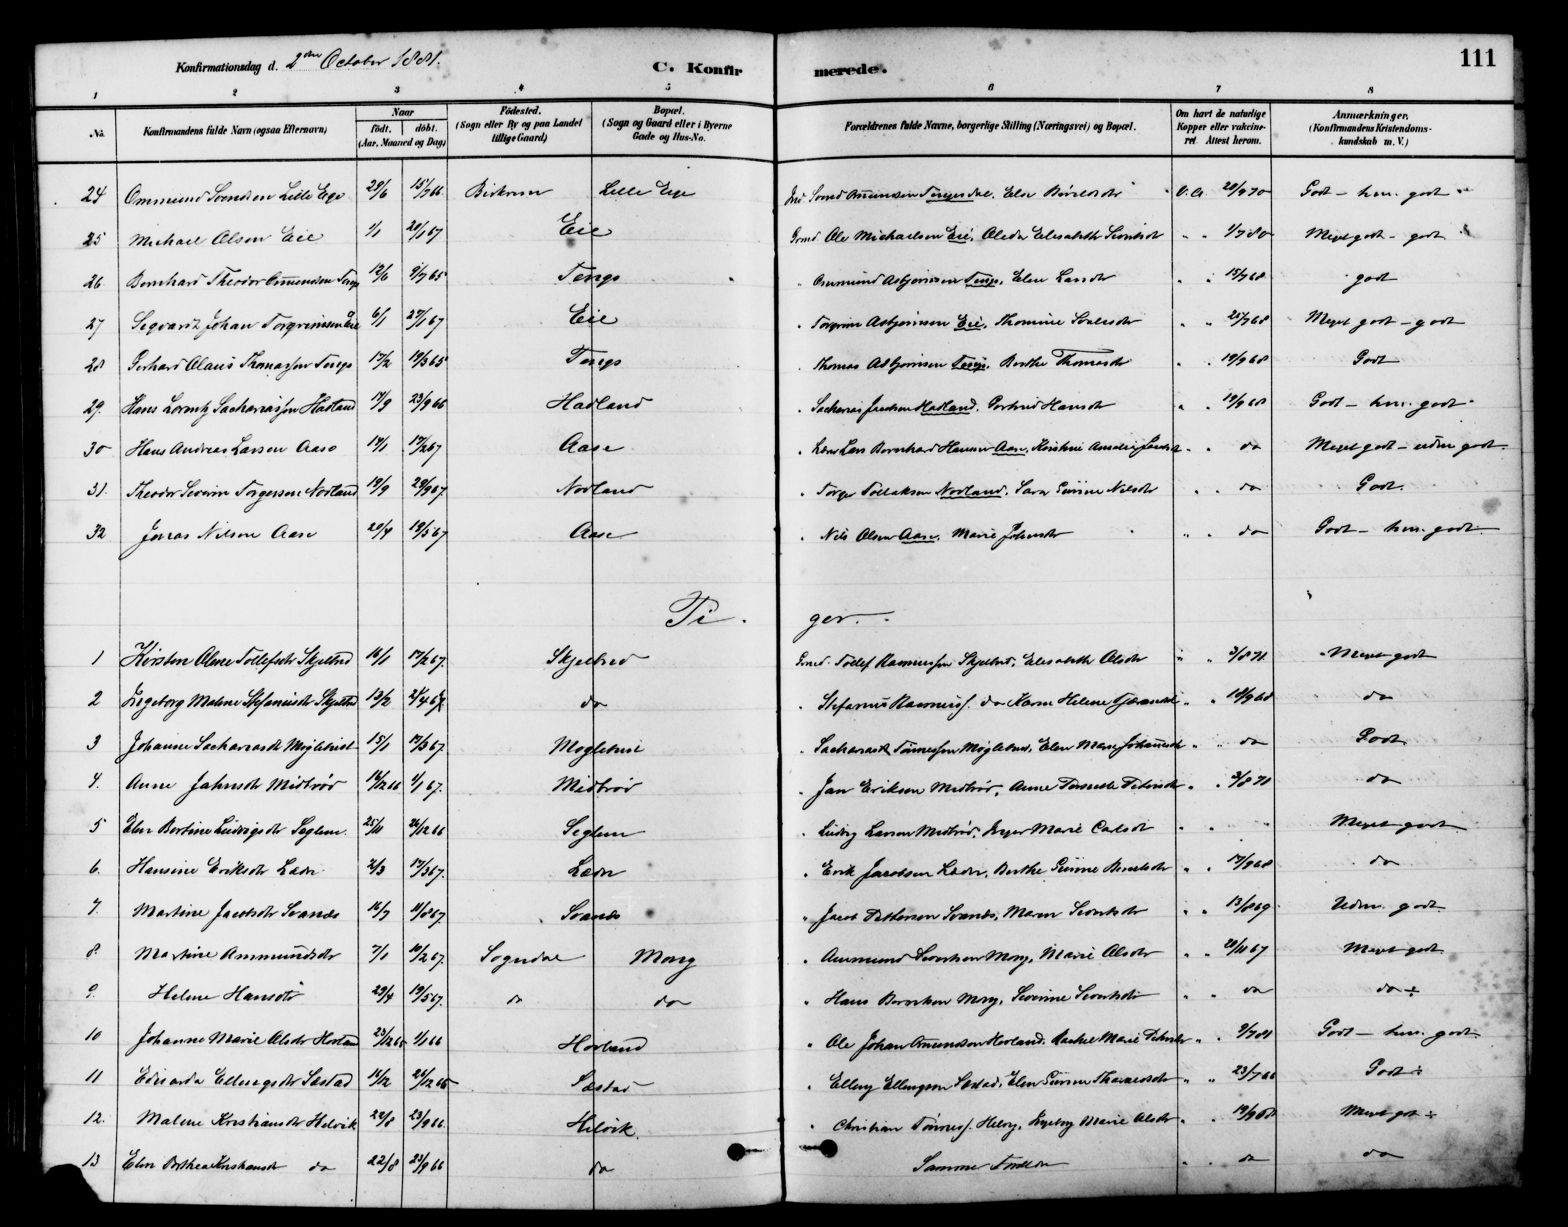 111
Konfirmationsdag d. 2den October 1881.
C. Konfirmerede.
1 2 3 4 5 6 7 8
No.
Konfirmandens fulde Navn (ogsaa Efternavn)
Naar
født. døbt.
(Aar, Maaned og Dag)
Fødested.
(Sogn eller By og paa Landet tillige Gaard)
Bopæl.
(Sogn og Gaard eller i Byerne Gade og Hus-No.
Forældrenes fulde Navne, borgerlige Stilling (Næringsvei) og Bopæl.
Om havt de naturlige Kopper eller vakcineret Attest herom.
Anmærkninger.
(Konfirmandens Kristendomskundskab m. V.)
24 Ommund Svendsen Lille Ege 29/6 15/7 66 Birkrem Lille Ege Elen v. a. 28/9 70 Godt – hm. godt
25 Michael Olsen Eie 1/1 20/1 67 Eie Gmd Ole Michaelsen Eie, Oleda Elisabeth " " 1/7 80 Meget godt – godt
26 Bernhard Theodor Omundsen Tengs 12/6 9/7 65 Tengs " Ommund Asbjørnsen Tengs, Elen " " 15/7 68 godt
27 Sigvardt Johan Torgrimsen Eie 6/1 27/1 67 Eie " Torgrim Asbjørnsen Eie, Thomine " " 25/7 68 Meget godt – godt
28 Gerhard Olaus Thomassen Tengs 17/2 19/3 65 Tengs " Thomas Asbjørnsen Tengs, Berthe Thomasdr " " 19/9 68 Godt
29. Hans Lorentz Sachariassen Hadland 17/9 23/9 66 Hadland " Sacharias Jacobsen Hadland, Gertrud Hansdr " " 19/9 68 Godt – hm. godt
30 Hans Andreas Larsen Aase 19/1 17/2 67 Aase " Lars Bernhard Hansen Aase, Kirstine Amalie " " do Meget godt – udm godt
31. Theodor Severin Torgersen Nodland 19/9 29/9 67 Nodland " Torger Tollaksen Nodland, Sara Gurine Nilsdr " " do Godt
32 Jonas Nilsen Aase 20/4 19/5 67 Aase " Nils Olsen Aase, Marie Johnsdr " " do Godt – hm. godt
Piger.
1 Kirsten Oline Tollefsdr Skjelbred 16/1 17/2 67 Skjelbred Gmd. Tollef Rasmussen Skjelbred, Elisabeth Olsdr " " 3/8 71 Meget godt
2 Ingeborg Malene Stefanusdr Skjelbred 13/2 2/4 67 do " Stefanus Rasmuss. do Karen Helene " " 18/9 68 do
3 Johanne Sachariasdr Møglebust 15/1 17/3 67 Møglebust " Sacharias Tønnessen Møglebust, Elen Marie Johannesdr " " do Godt
4. Anne Jahnsdr Midbrød 14/12 66 1/1 67. Midbrød " Jan Eriksen Midbrød, Anne Pernille " " 3/8 71 do
5 Elen Bertine Ludvigsdr Seglem 25/11 26/12 66 Seglem " Ludvig Larsen Midbrød, Inger Marie Carlsdr " " " Meget godt
6. Hansine Eriksdr Lædre 2/3 17/3 67. Lædre " Erik Jacobsen Lædre, Berthe Gurine " " 17/9 68 do
7. Martine Jacobsdr Svanes 16/7 11/8 67. Svanes " Jacob Pettersen Svanes, Maren Sivertsdr " " 13/8 69 Udm. godt
8. Martine Ammundsdr 7/1 10/2 67. Sogndal Mong " Ammund Sivertsen Mong, Marie Olsdr " " 28/11 67 Meget godt
9. Helene Hansdr 29/4 19/5 67. do do " Hans Berentsen Mong, Severine Sivertsdr " " do do
10 Johanne Marie Olsdr Hovland 23/12 65 1/1 66 Hovland " Ole Johan Omundsen Hovland, Rachel Marie " " 9/7 81 Godt – hm. godt
11 Eduarda Ellingsdr Sæstad 14/12 24/12 65 Sæstad " Elling Ellingsen Sæstad, Elen Gurine " " 23/7 66 Godt
12. Malene Kristiansdr Helvik 22/8 23/9 66. Helvik. " Christian Tønness. Helvig, Ingeborg Marie Olsdr " " 19/9 68 Meget godt
13 Elen Berthea Kristiansdr do 22/8 23/9 66 do Samme Forældre " " do do